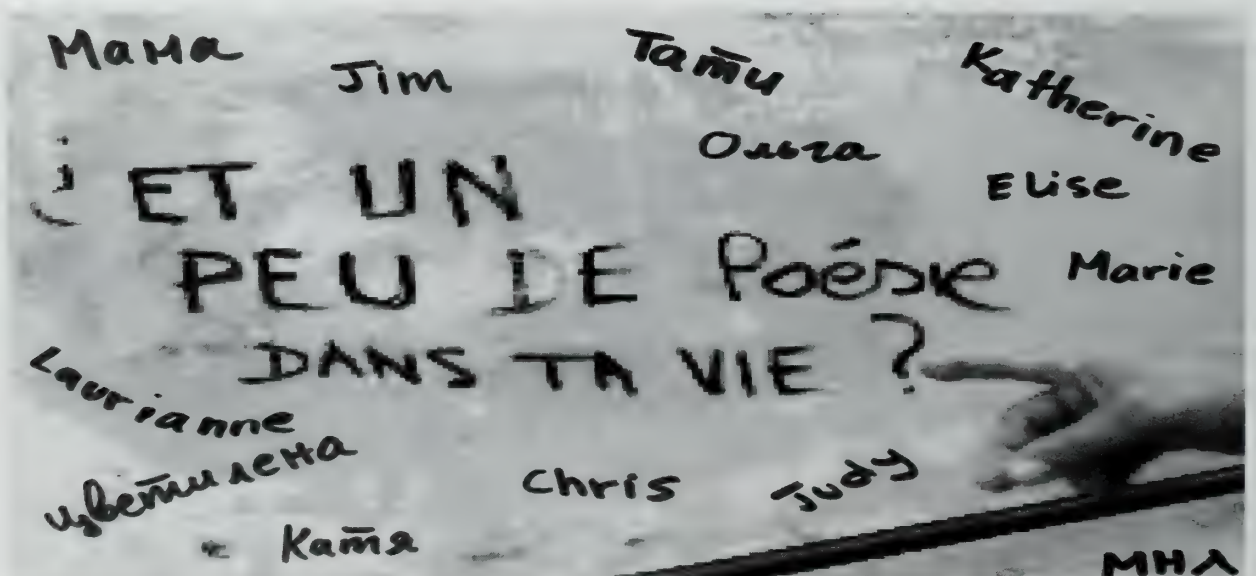 Мама
Jim
Тати
Katherine
Ольга
Elise
¿ ET UN
PEU DE Poésie
DANS TA VIE ?
Marie
Laurianne
цветилена
Chris
Judy
Катя
МНЛ